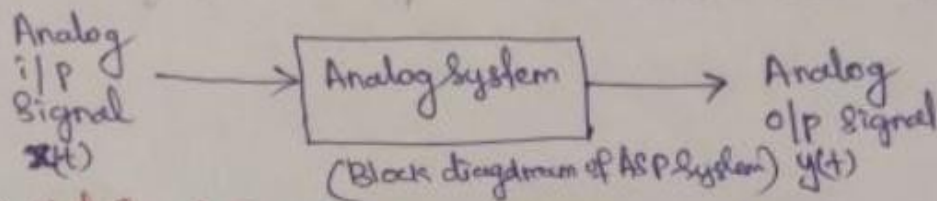 Analog
i/p
Signal
x(t)
Analog System
Analog
o/p Signal
y(t)
(Block diagdram of ASP System)